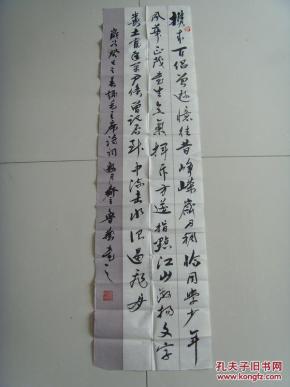 携来百侣曾游憶往昔峥嵘岁月稠恰同学少年
风华正茂书生意气挥斥方遒指点江山激扬文字
粪土当年万户侯曾记否到中流击水浪遏飞舟
岁次癸巳之毛主席诗词